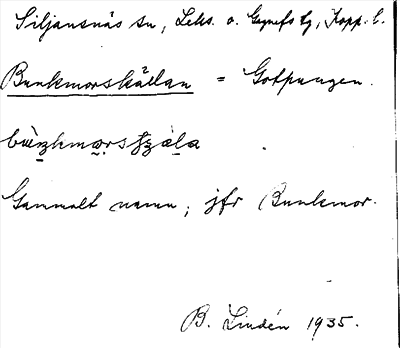 Siljansnäs sn, Leks. o. Gagnefs tg, Kopp. l.
Bunkmorskällan = Gotpungen.
Gammalt namn; jfr Bunkmor.
B. Lindén 1935.